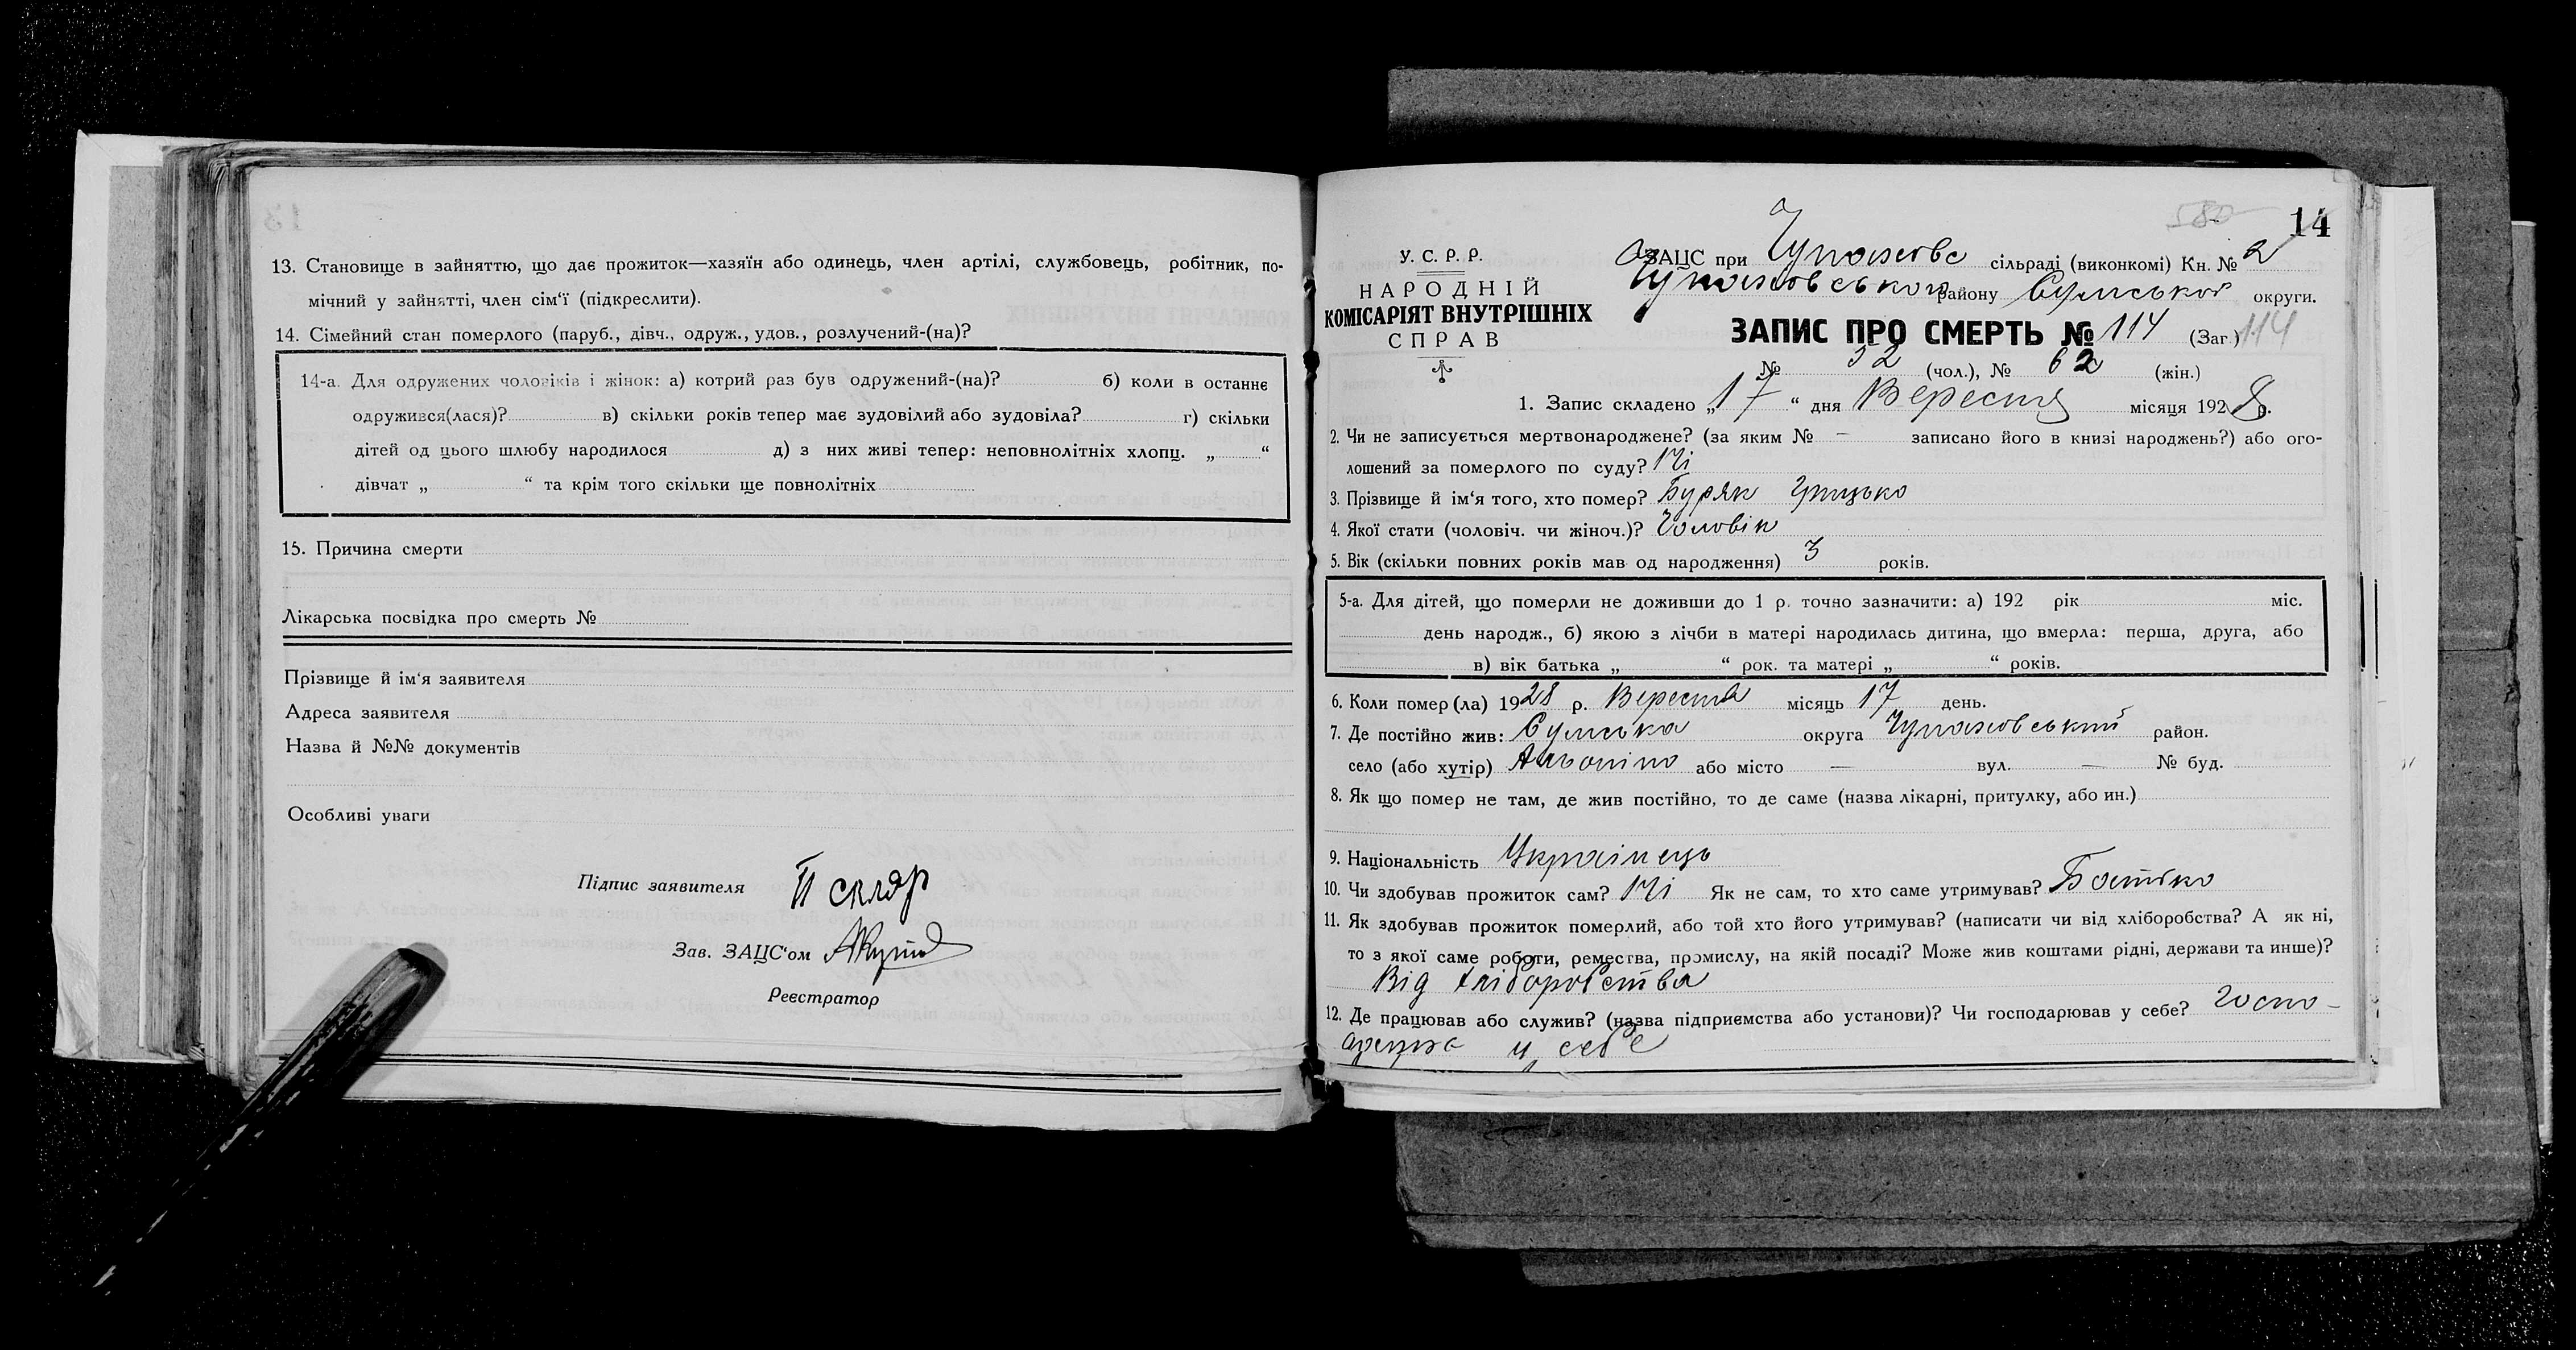 13. Становище в зайняттю, що дає прожиток—хазяїн або одинець, член артілі, службовець, робітник, по-
мічний у зайнятті, член сім'ї (підкреслити).
14. Сімейний стан померлого (паруб., дівч., одруж., удов., розлучений-(на)?
14-а. Для одружених чоловіків і жінок: а) котрий раз був одружений-(на)? б) коли в останнє
одружився(лася)? в) скільки років тепер має зудовілий або зудовіла? г) скільки
дітей од цього шлюбу народилося д) з них живі тепер: неповнолітніх хлопц. „ “
дівчат „ “ та крім того скільки ще повнолітніх
15. Причина смерти
Лікарська посвідка про смерть №
Прізвище й ім'я заявителя
Адреса заявителя
Назва й №№ документів
Особливі уваги
Підпис заявителя П скляр
Зав. ЗАЦС'ом
Реєстратор
580
14
У. С. Р. Р.
НАРОДНІЙ
КОМІСАРІЯТ ВНУТРІШНІХ
СПРАВ
ЗАЦС при Чупахівс сільраді (виконкомі) Кн. № 2
Чупахівського району Сумської округи.
ЗАПИС ПРО СМЕРТЬ № 114 (Заг.) 114
№ 52 (чол.), № 62 (жін.)
1. Запис складено „17“ дня Вересня місяця 1928 р.
2. Чи не записується мертвонароджене? (за яким № – записано його в книзі народжень?) або ого-
лошений за померлого по суду? Ні
3. Прізвище й ім'я того, хто помер? Буряк Грицько
4. Якої стати (чоловіч. чи жіноч.)? Чоловік
5. Вік (скільки повних років мав од народження) 3 років.
5-а. Для дітей, що померли не доживши до 1 р. точно зазначити: а) 192 рік міс.
день народж., б) якою з лічби в матері народилась дитина, що вмерла: перша, друга, або
в) вік батька „ “ рок. та матері „ “ років.
6. Коли помер (ла) 1928 р. Вересня місяць 17 день.
7. Де постійно жив: Сумська округа Чупахівський район.
село (або хутір) або місто — вул. — № буд.
8. Як що помер не там, де жив постійно, то де саме (назва лікарні, притулку, або ин.)
9. Національність Українець
10. Чи здобував прожиток сам? Ні Як не сам, то хто саме утримував? Батько
11. Як здобував прожиток померлий, або той хто його утримував? (написати чи від хліборобства? А як ні,
то з якої саме роботи, ремества, промислу, на якій посаді? Може жив коштами рідні, держави та инше)?
Від хліборобства
12. Де працював або служив? (назва підприємства або установи)? Чи господарював у себе? Госпо-
дарює у себе